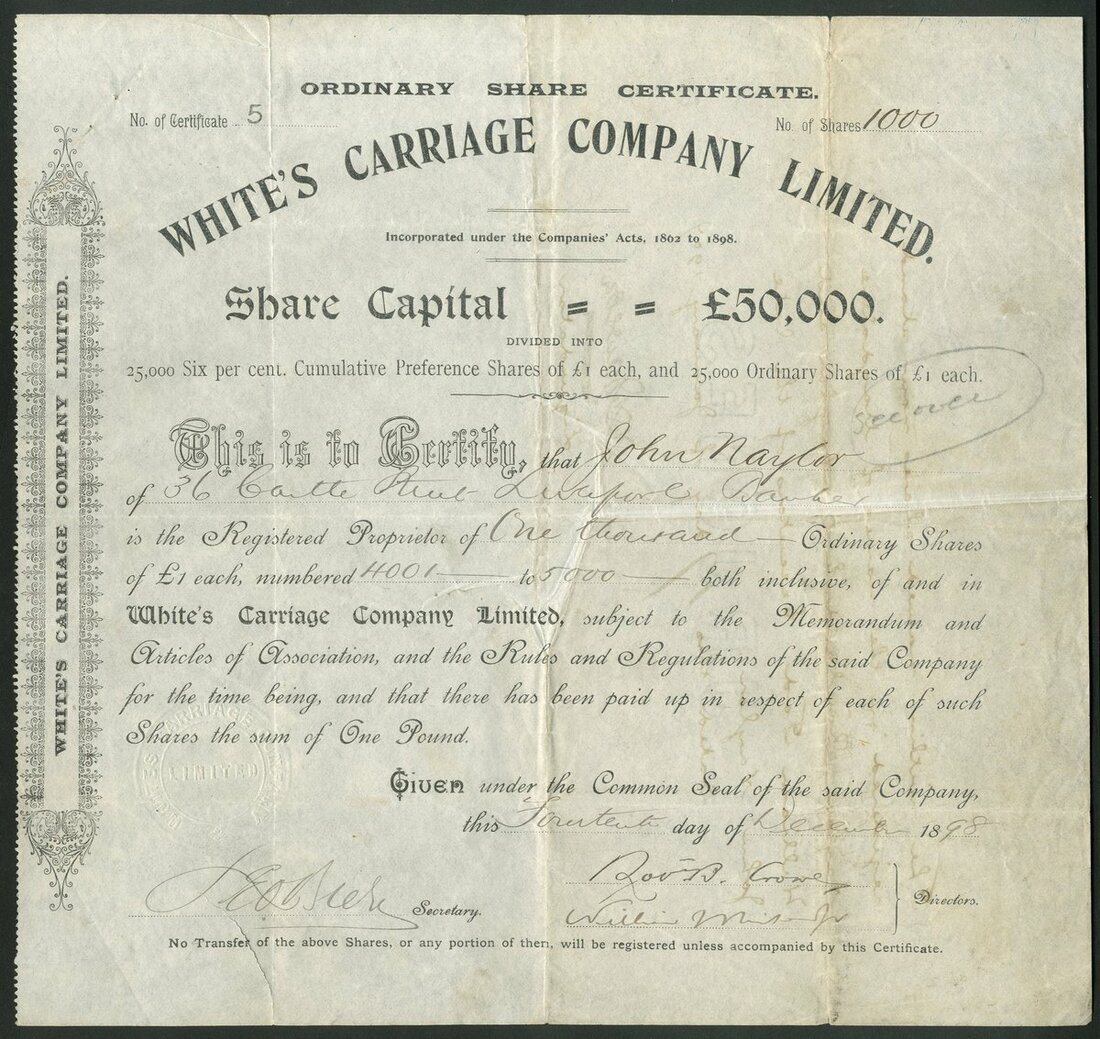 ORDINARY SHARE CERTIFICATE.
No. of Certificate 5
No. of Shares 1000
WHITE'S CARRIAGE COMPANY LIMITED.
Incorporated under the Companies' Acts, 1862 to 1898.
Share Capital = = £50,000.
DIVIDED INTO
25,000 Six per cent. Cumulative Preference Shares of £1 each, and 25,000 Ordinary Shares of £1 each.
see over
This is to Certify, that John Naylor
of 36 Castle Street Liverpool Banker
is the Registered Proprietor of One thousand Ordinary Shares
of £1 each, numbered 4001 to 5000 both inclusive, of and in
White's Carriage Company Limited, subject to the Memorandum and
Articles of Association, and the Rules and Regulations of the said Company
for the time being, and that there has been paid up in respect of each of such
Shares the sum of One Pound.
Given under the Common Seal of the said Company,
this Fourteenth day of December 1898
Secretary.
Robt B. Crowe
William
Directors.
No Transfer of the above Shares, or any portion of then, will be registered unless accompanied by this Certificate.
WHITE'S CARRIAGE COMPANY LIMITED.
CARRIAGE
LIMITED